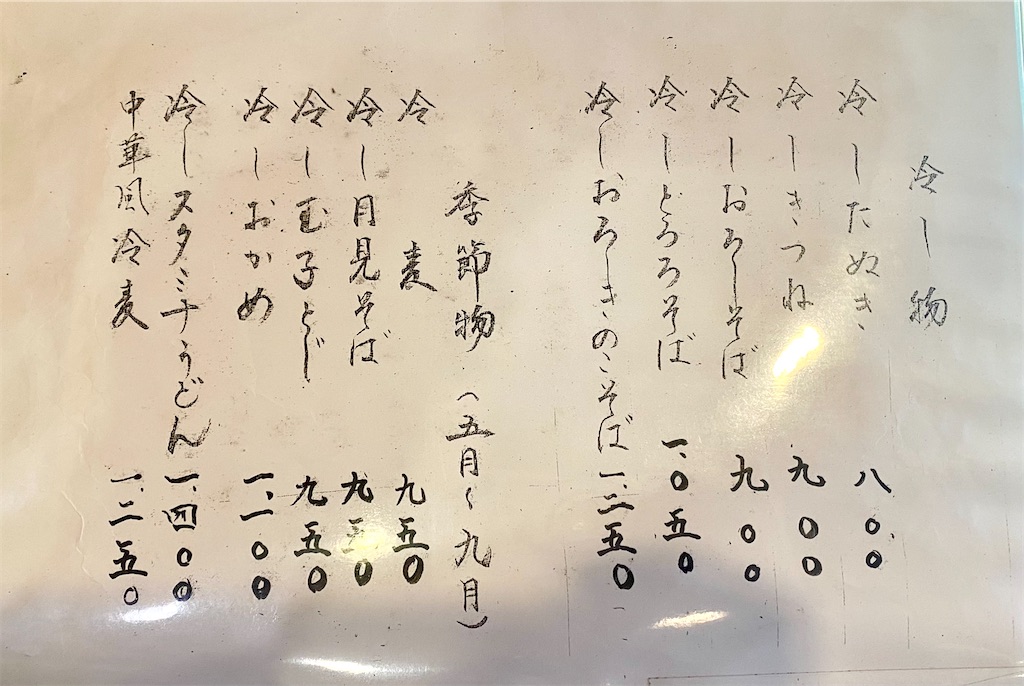 冷し物
冷したぬき 八〇〇
冷しきつね 九〇〇
冷しおろしそば 九〇〇
冷しとろろそば 一、〇五〇
冷しおろしきのこそば 一、二五〇
季節物（五月〜九月）
冷麦 九五〇
冷し月見そば 九三〇
冷し玉子とじ 九五〇
冷しおかめ 一、一〇〇
冷しスタミナうどん 一、四〇〇
中華風冷麦 一、二五〇